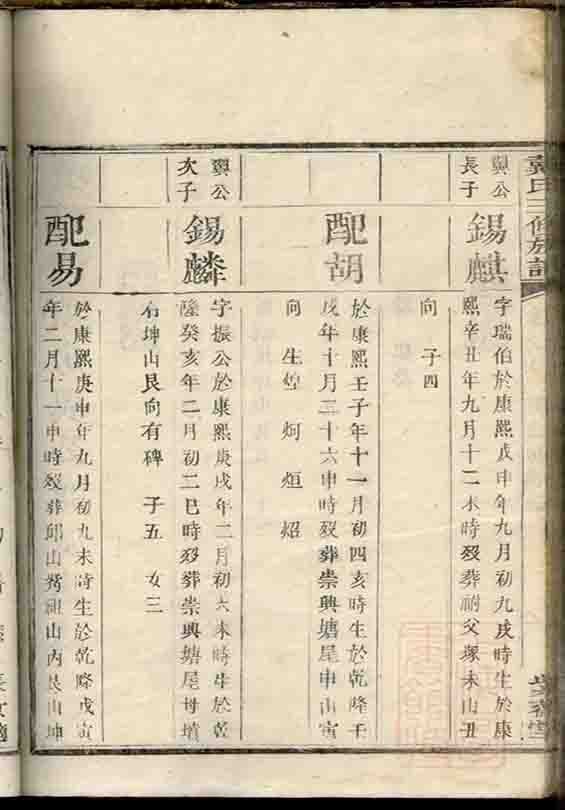 氏三修族譜
翼公長子
錫麒
字瑞伯於康熙戊申年九月初九戌時生於康
熙辛丑年九月十二未時歿葬祔父塚未山丑
向 子四
配胡
於康熙壬子年十一月初四亥時生於乾隆壬
戌年十月二十六申時歿葬崇興塘尾申山寅
向 生煌 炯 烜 炤
翼公次子
錫麟
字振公於康熙庚戌年二月初六未時生於乾
隆癸亥年二月初二巳時歿葬崇興塘尾母墳
右坤山艮向有碑 子五 女三
配易
於康熙庚申年九月初九未時生於乾隆戊寅
年二月十一申時歿葬邱山灣祖山內艮山坤